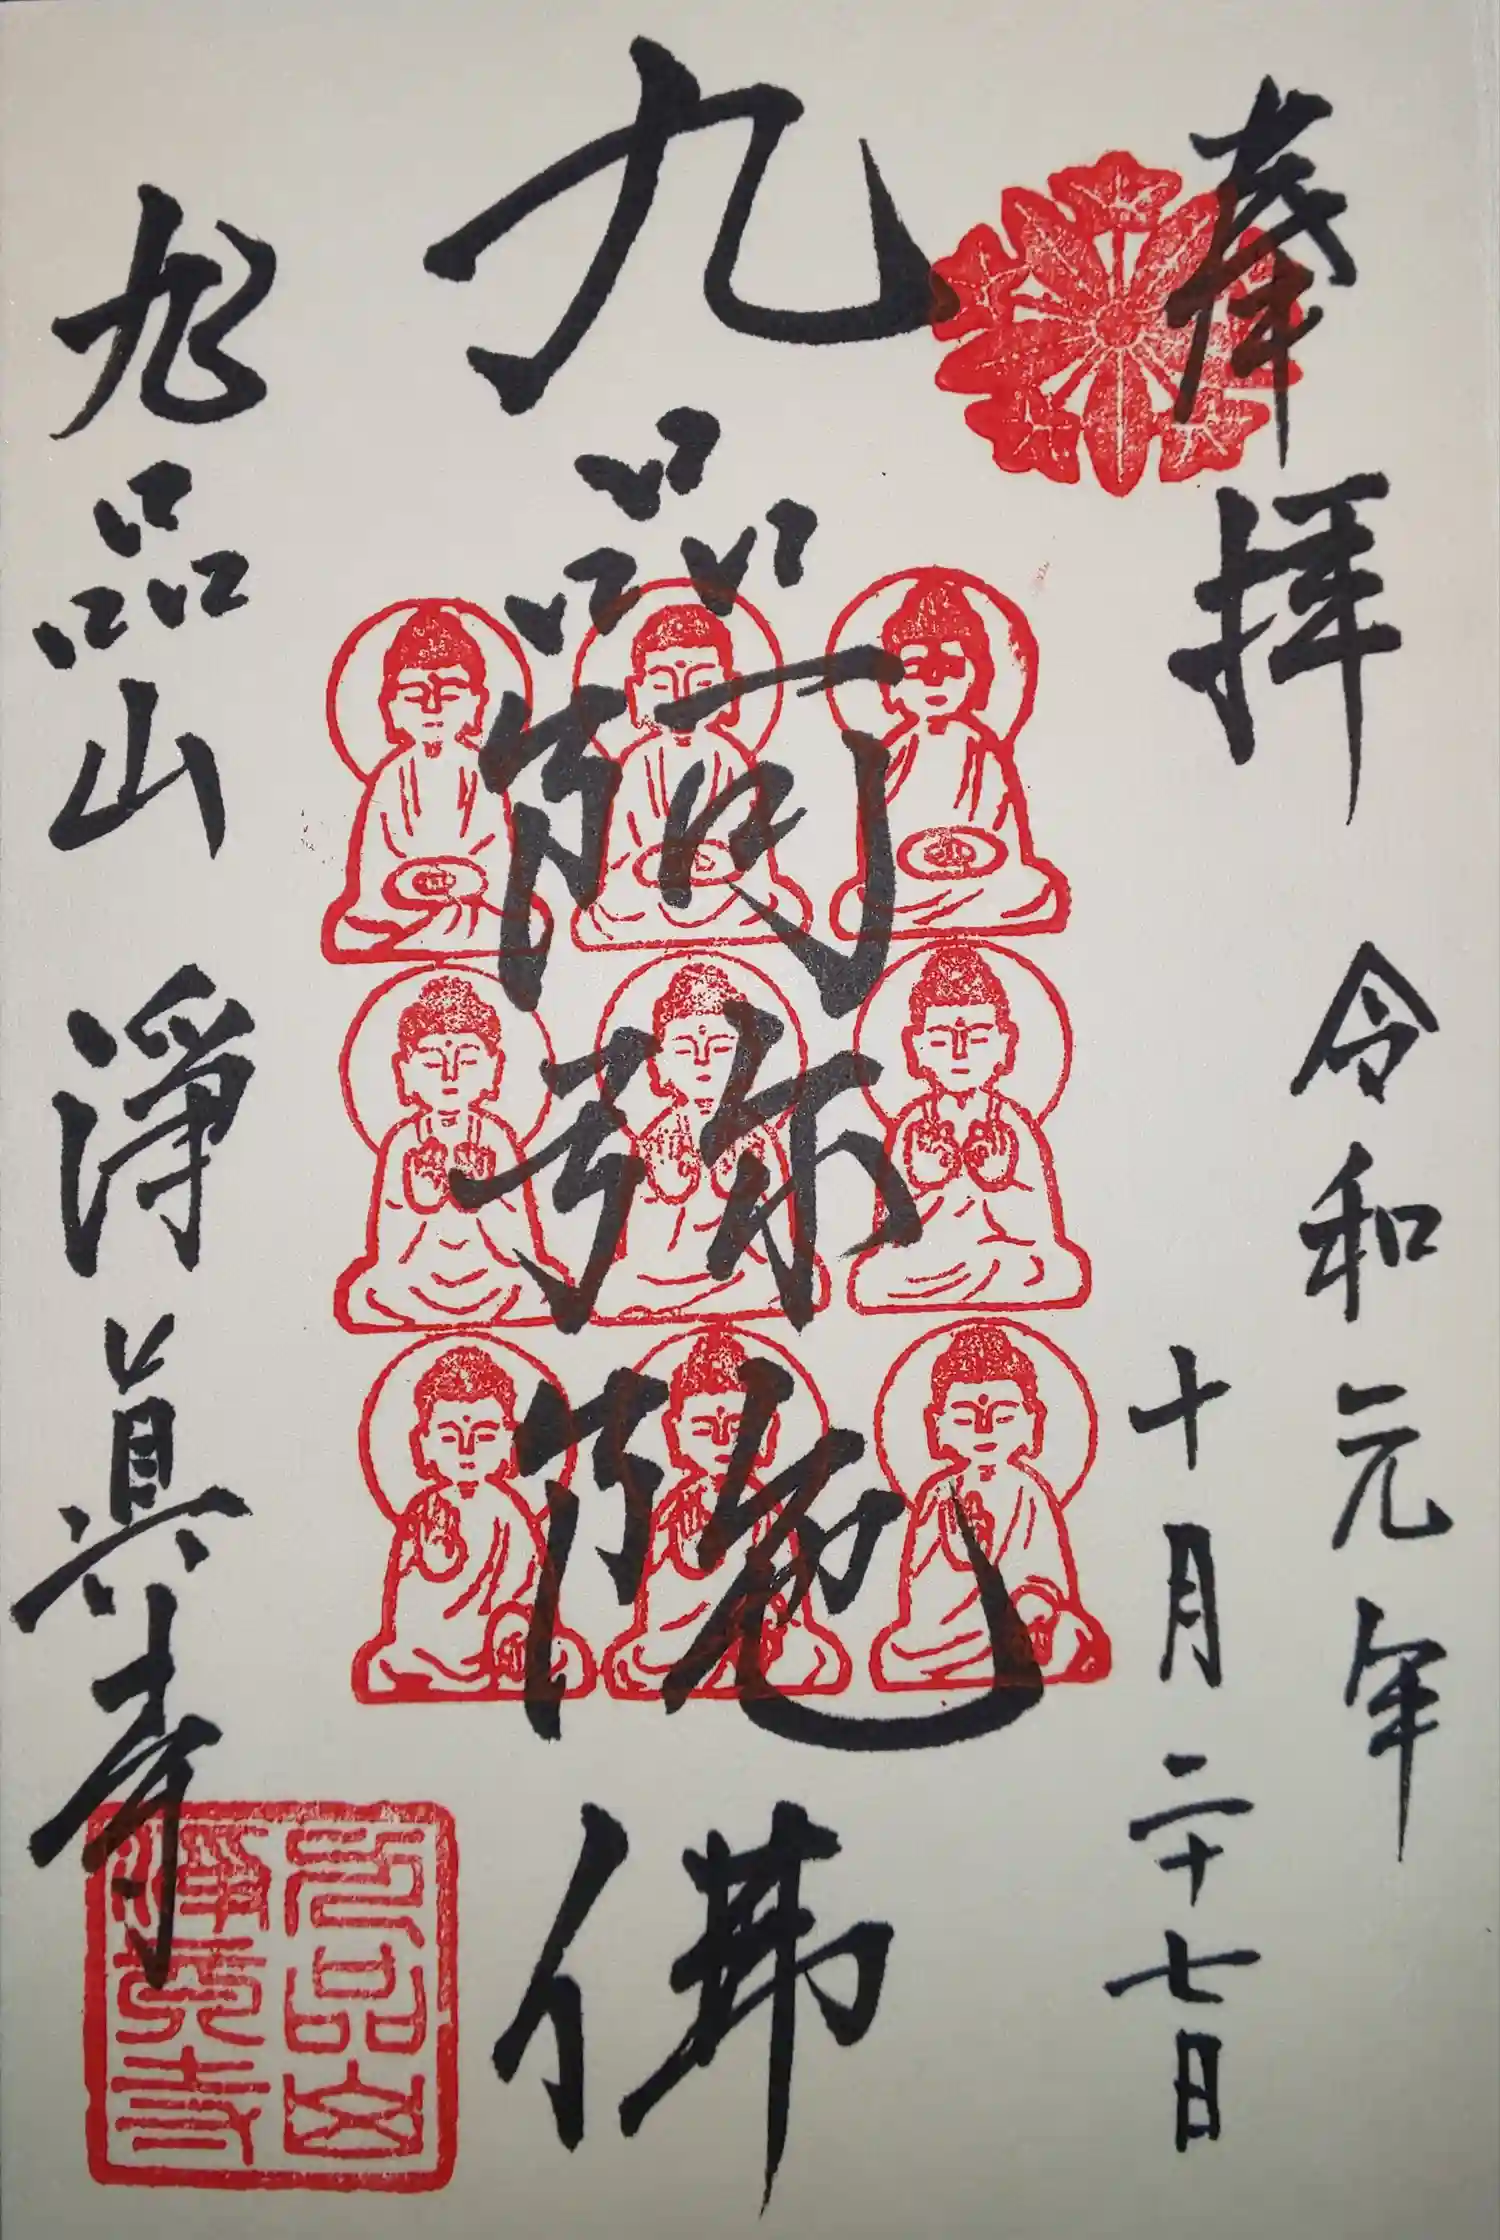 奉拝
令和元年
十月二十七日
九品阿弥陀佛
九品山
淨眞寺
九品山
淨真寺